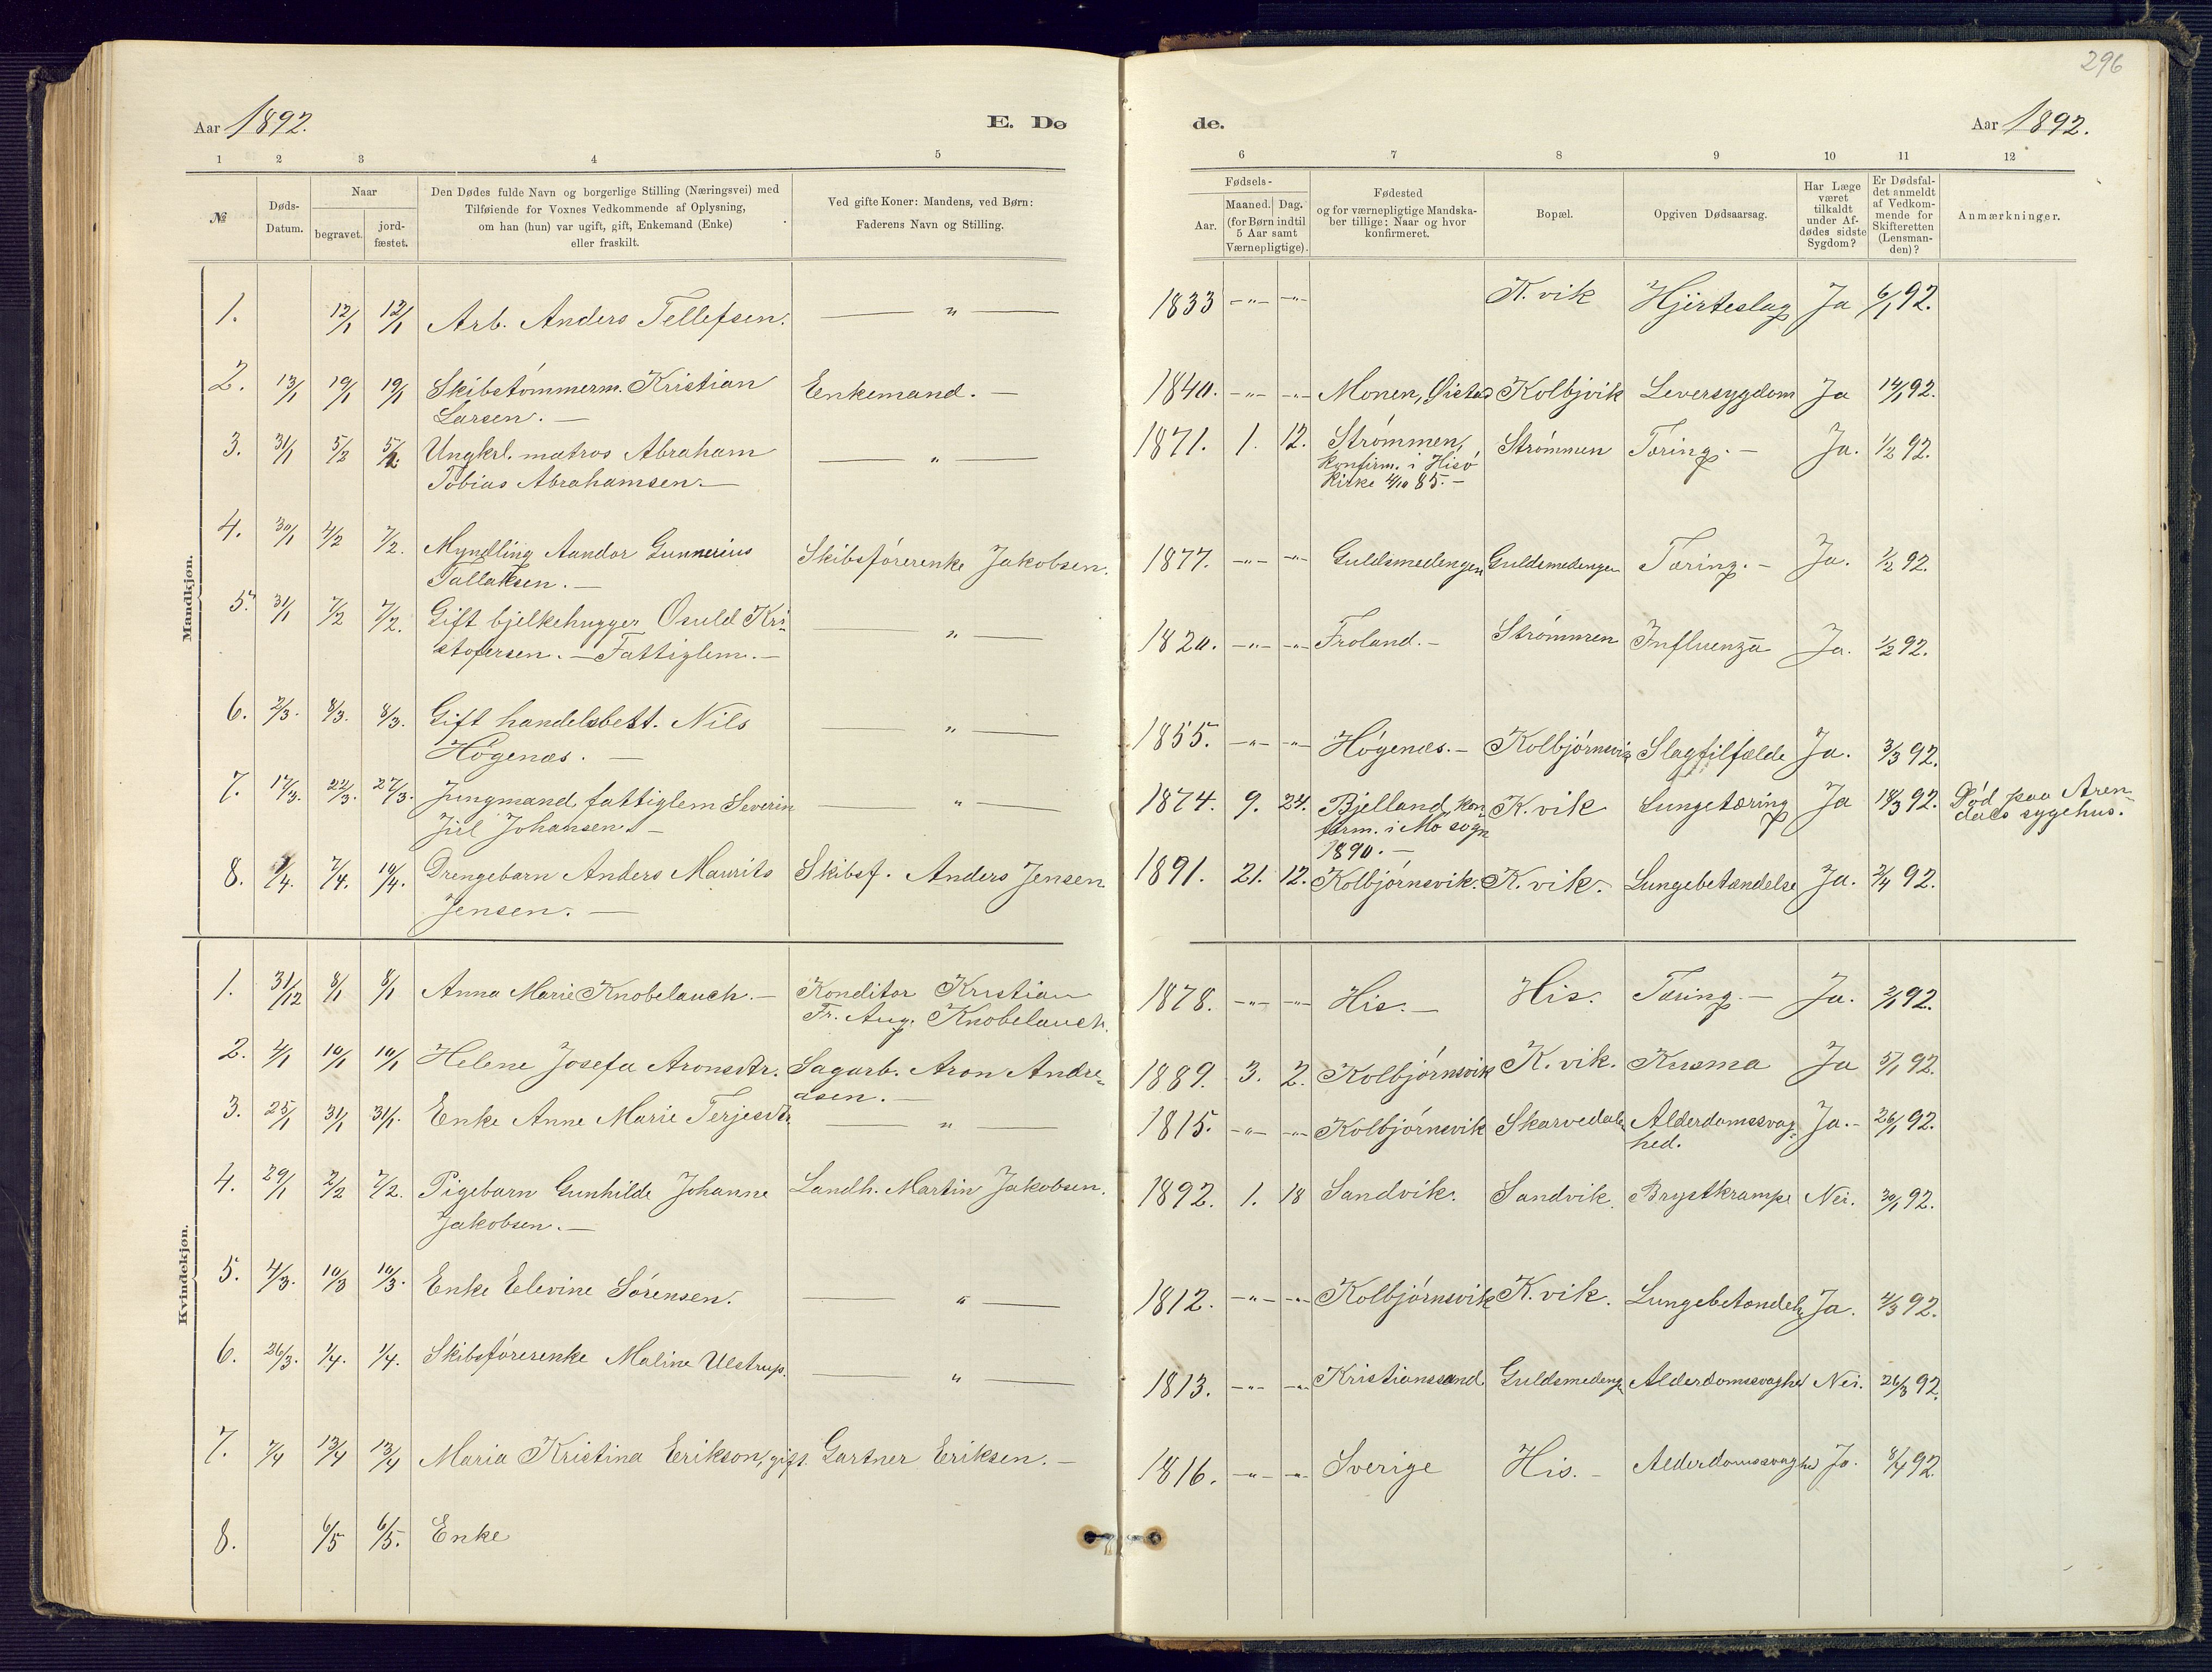 296
Aar 1892.
E. Dø
de.
Aar 1892.
1 2 3 4 5
6 7 8 9 10 11 12
№
Døds-
Datum.
Naar
begravet.
jord-
fæstet.
Den Dødes fulde Navn og borgerlige Stilling (Næringsvei) med
Tilføiende for Voxnes Vedkommende af Oplysning,
om han (hun) var ugift, gift, Enkemand (Enke)
eller fraskilt.
Ved gifte Koner: Mandens, ved Børn:
Faderens Navn og Stilling.
Fødsels-
Aar.
Maaned. Dag.
(for Børn indtil
5 Aar samt
Værnepligtige).
Fødested
og for værnepligtige Mandska-
ber tillige: Naar og hvor
konfirmeret.
Bopæl.
Opgiven Dødsaarsag.
Har Læge
været
tilkaldt
under Af-
dødes sidste
Sygdom?
Er Dødsfal-
det anmeldt
af Vedkom-
mende for
Skifteretten
(Lensman-
den)?
Anmærkninger.
Mandkjøn.
1. 12/1 12/1 Arb. Anders Tellefsen. — " — 1833 -"- -"- K.vik Hjerteslag Ja 6/1 92.
2. 13/1 19/1 19/1 Skibstømmerm. Kristian Enkemand. — 1840. -"- -"- Monen, Øistad Kolbjvik Leversygdom Ja 14/1 92.
Larsen. —
3. 31/1 5/2 5/2 Ungkrl. matros Abraham — " — 1871. 1. 12. Strømmen, Strømmen Tæring. — Ja. 1/2 92.
Tobias Abrahamsen. — konfirm. i Hisø
kirke 4/10 85. —
4. 30/1 7/2 7/2. Myndling Aandor Gunnerius Skibsførerenke Jakobsen. 1877. -"- -"- Guldsmedengen Guldsmedengen Tæring. — Ja. 1/2 92.
Tallaksen. —
5. 31/1 7/2 7/2. Gift bjelkehugger Osuld Kri- — " — 1820. -"- -"- Froland. — Strømmen Influenza Ja. 1/2 92.
stofersen. — Fattiglem. —
6. 2/3. 8/3. 8/3. Gift handelsbest. Nils — " — 1855. -"- -"- Høgenæs. — Kolbjørnsvig Slagtilfælde Ja. 3/3 92.
Høgenæs. —
7. 17/3. 22/3. 27/3. Jungmand fattiglem Severin — " — 1874. 9. 24. Bjelland, kon- K.vik Lungetæring Ja 18/3 92. Død paa Aren-
Juel Johansen. — firm. i Mo sogn dals sygehus.
1890. —
8. 1/4. 7/4. 10/4. Drengebarn Anders Maurits Skibsf. Anders Jensen 1891. 21. 12. Kolbjørnsvik. K.vik. Lungebetændelse Ja. 2/4 92.
Jensen. —
Kvindekjøn.
1. 31/12 8/1 8/1 Anna Marie Knobelauch. — Konditor Kristian 1878. -"- -"- His. — His. Tæring. — Ja. 2/1 92.
Fr. Aug. Knobelauch.
2. 4/1 10/1 10/1 Helene Josefa Aronsdtr. Sagarb. Aron Andre- 1889. 3. 2. Kolbjørnsvik K.vik. Kusma Ja 5/1 92.
asen. —
3. 25/1 31/1 31/1. Enke Anne Marie Terjesdtr. — " — 1815. -"- -"- Kolbjørnsvik Skarvedalen Alderdomssvag- Ja. - 26/1 92.
hed.
4. 29/1 2/2 7/2. Pigebarn Gunhilde Johanne Landh. Martin Jakobsen. 1892. 1. 18 Sandvik. Sandvik. Brystkrampe Nei. 30/1 92.
Jakobsen. —
5. 4/3. 10/3 10/3. Enke Elevine Sørensen. — " — 1812. -"- -"- Kolbjørnsvik K.vik. Lungebetændelse Ja. 4/3 92.
6. 26/3. 1/4. 1/4. Skibsførerenke Maline Ulstrup. — " — 1813. -"- -"- Kristianssand Guldsmedengen Alderdomssvaghed Nei. 26/3 92.
7. 7/4 13/4 13/4 Maria Kristina Erikson, gift. Gartner Eriksen. — 1816. -"- -"- Sverige His. — Alderdomssvaghed Ja. 8/4 92.
8. 6/5 6/5. Enke